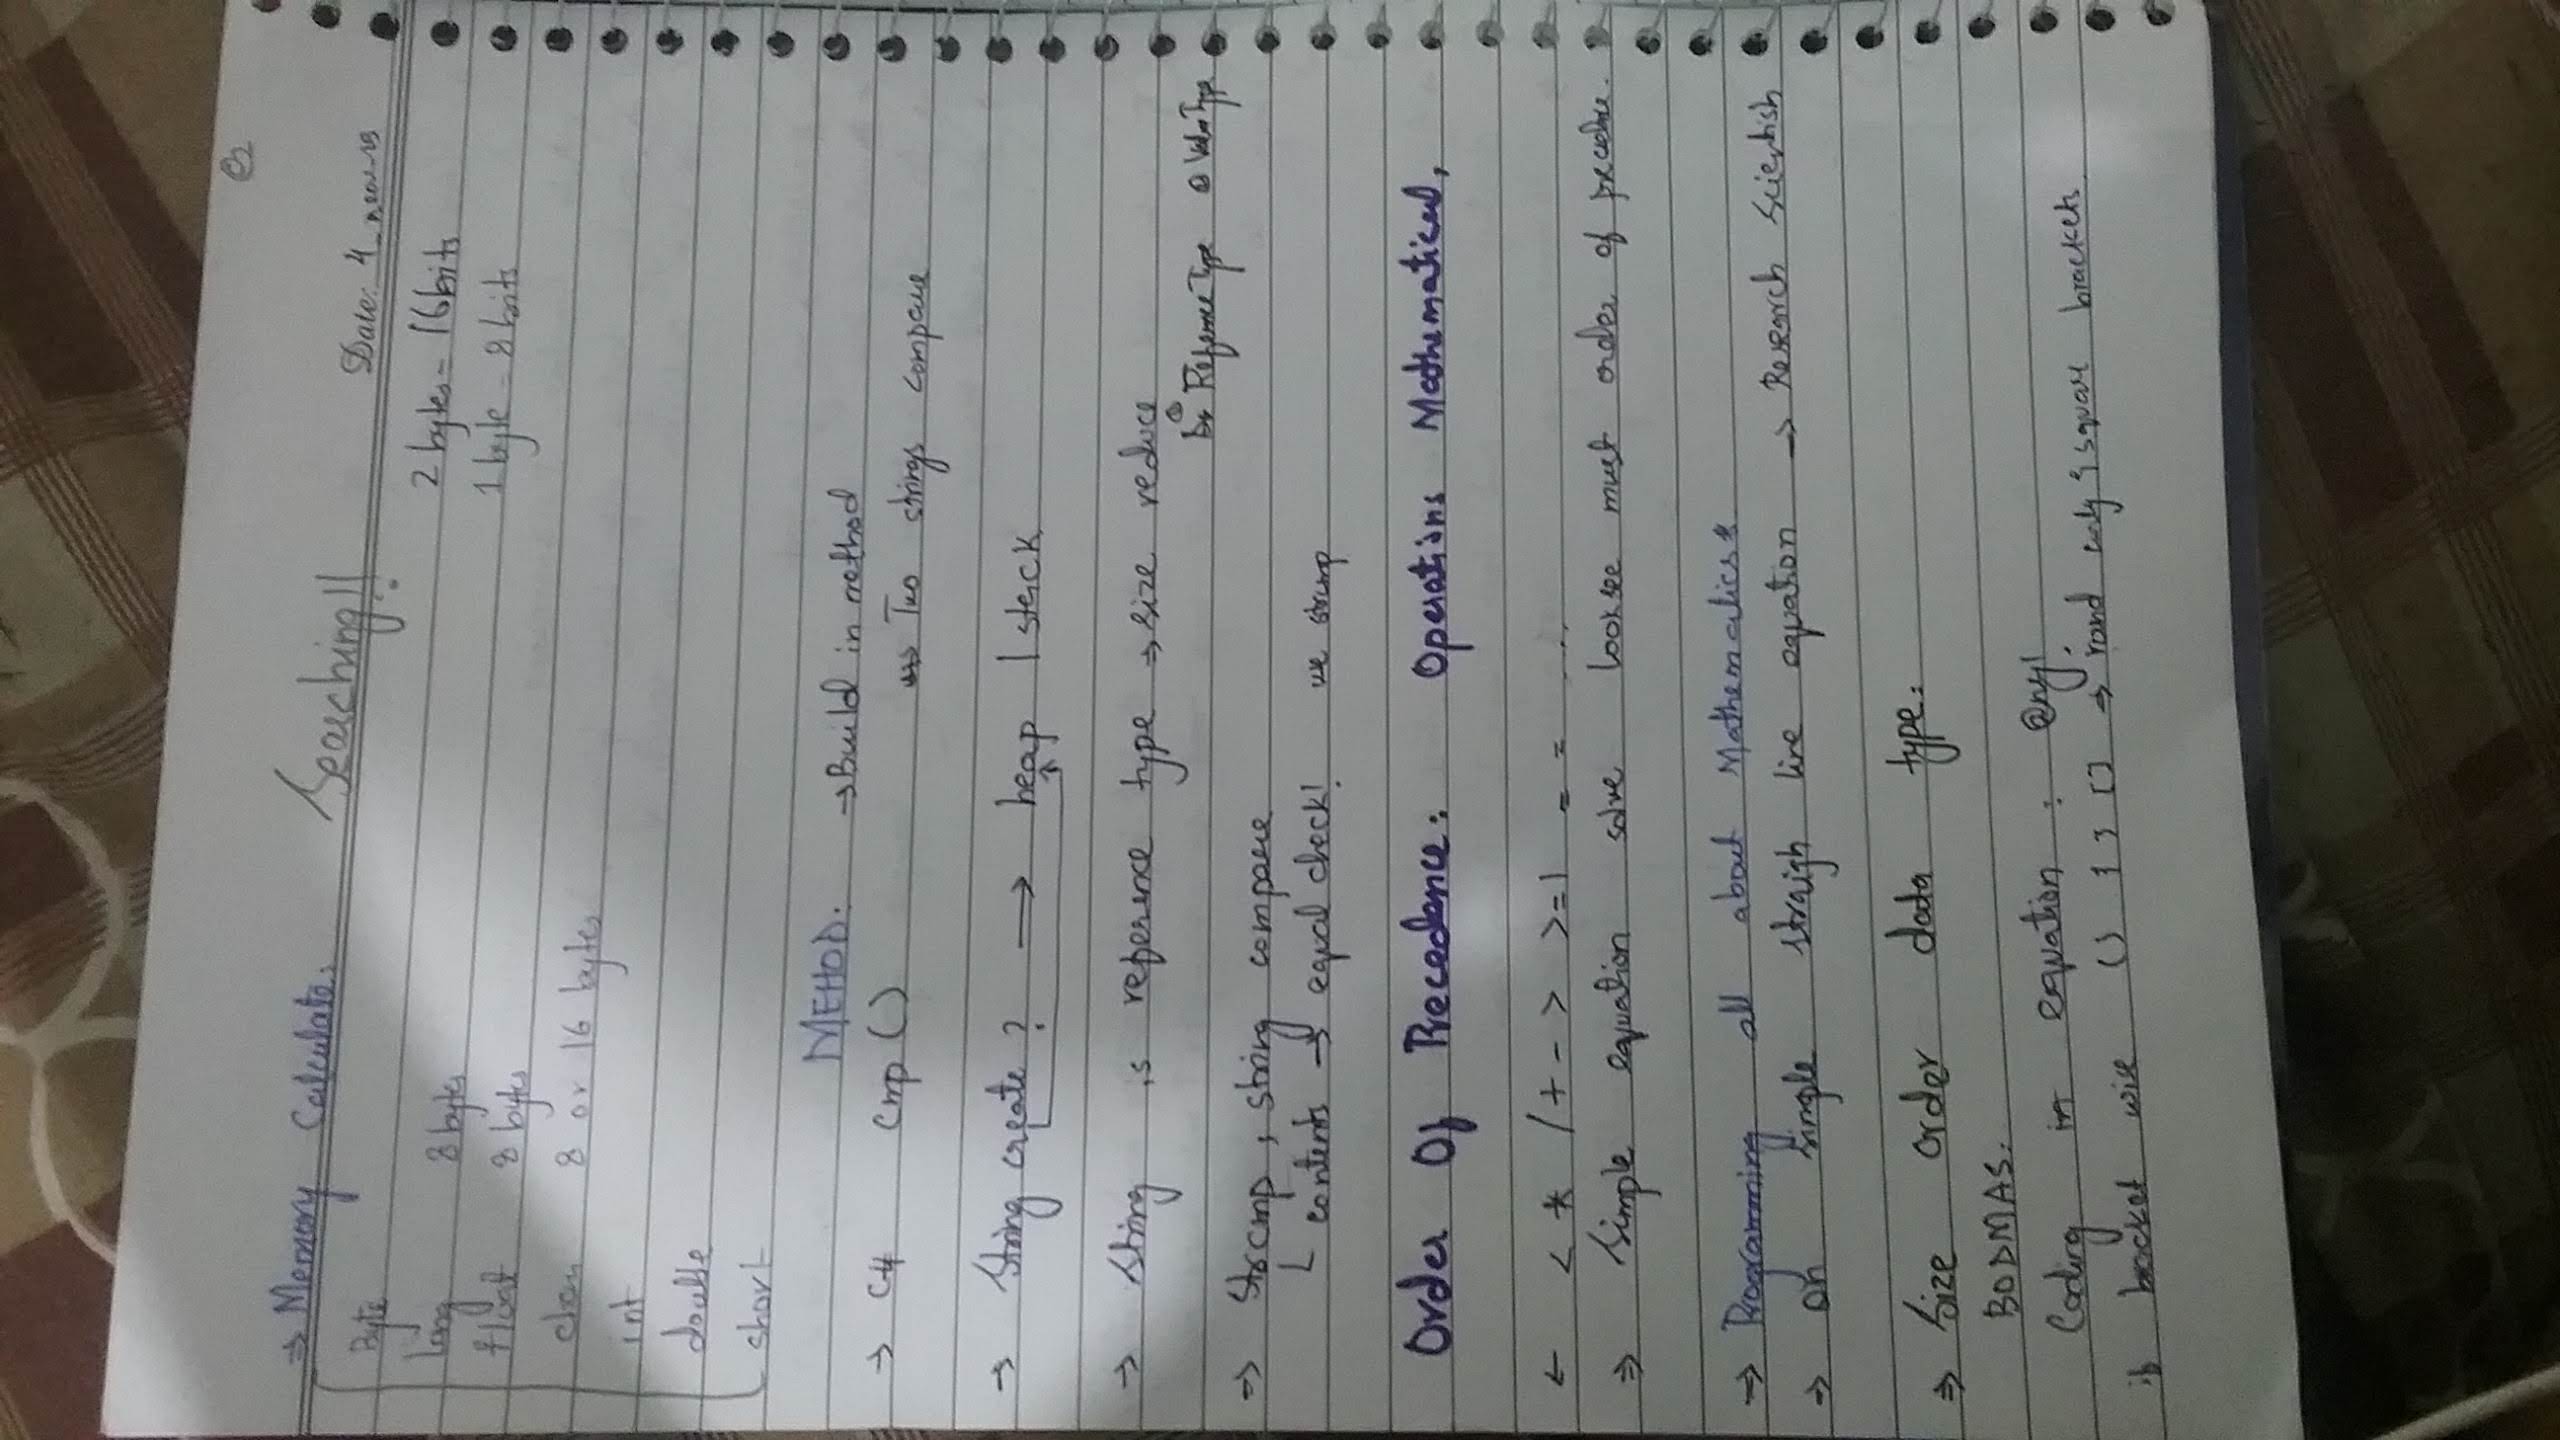 ⇒ Memory Calculate.
Searching!!
Date: 4
Byte
2 bytes = 16 bits
long 8 bytes
1 byte = 8 bits
float 8 bytes
8 or 16 bytes
int
double
short
METHOD. → Build in method
→ C# cmp()
Two strings compare
→ String create? → heap | stack
→ String is reference type → size reduce
Reference Type
⇒ Strcmp, string compare
contents → equal check!
Order Of Precedance: Operations Mathematical,
← < * / + - > > = ! = = ...
⇒ Simple equation solve must order of precedure.
⇒ Programming all about Mathematics*
→ on simple straigh line equation → Research scientish
⇒ Size order data type:
BODMAS:
Coding in equation :
bracket wise () { } [] ⇒ square brackets